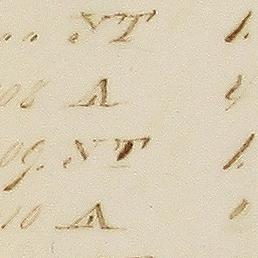 .. NT 1.
08 A 4
09. NT 1.
10 A 0